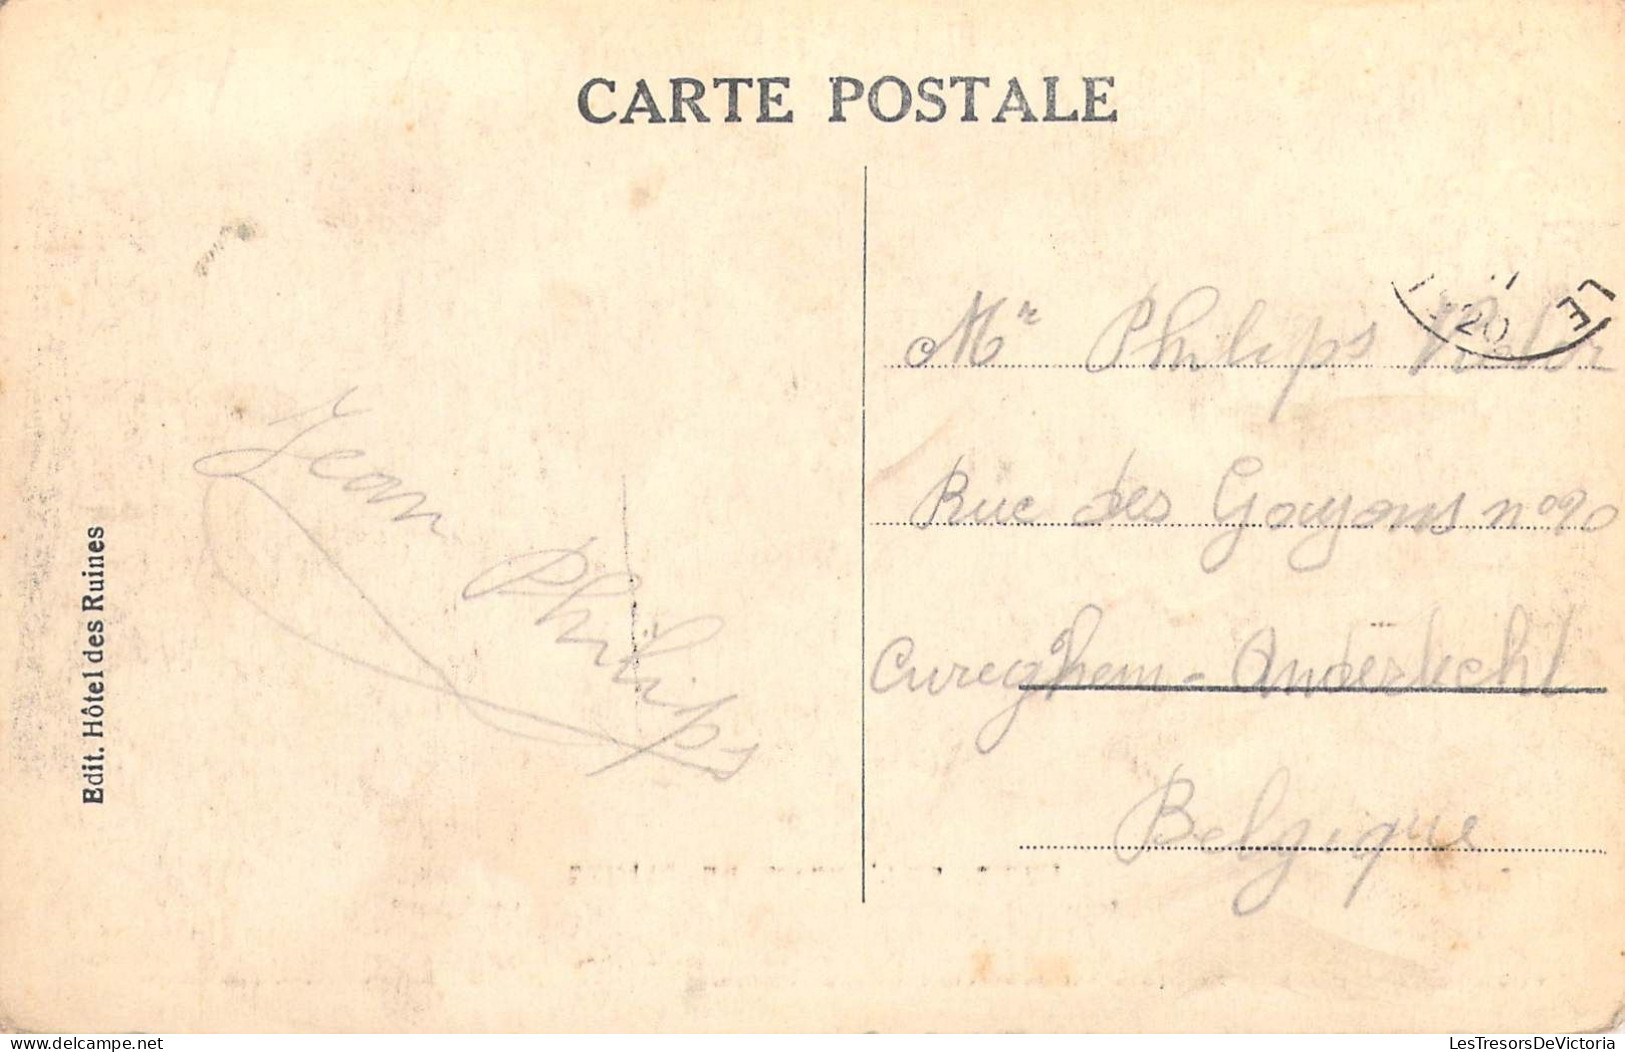 CARTE POSTALE
Edit. Hôtel des Ruines
Jean Philips
Mr Philips
Rue des Goujons no 90
Cureghem - Anderlecht
Belgique
20
LE
LesTresorsDeVictoria
delcampe.net